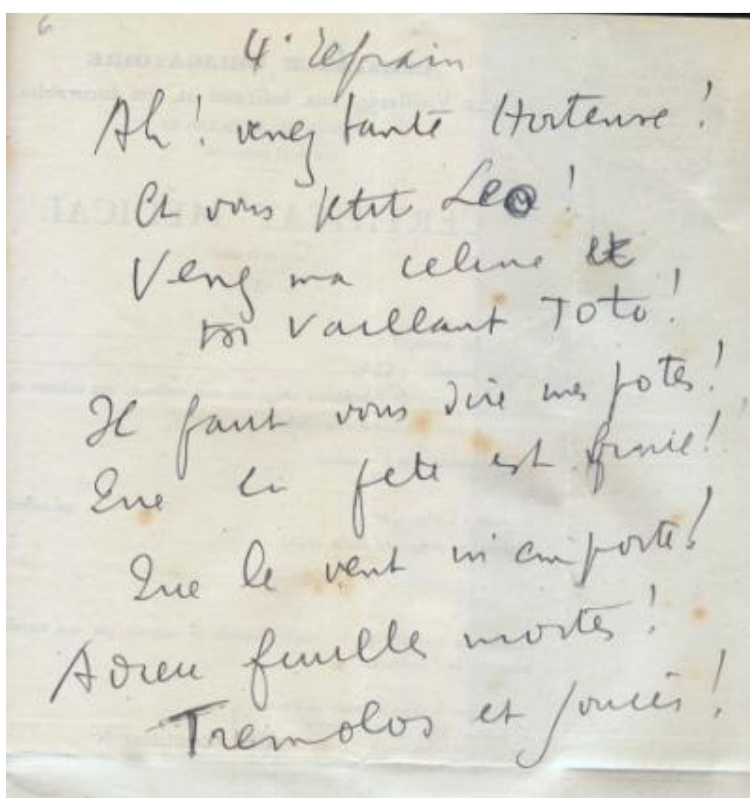 6
4e Refrain
Ah! venez tante Hortense!
Et vous ptit Leo!
Venez ma celine et
toi vaillant Toto!
Il faut vous dire mes potes!
Que la fete est finie!
Que le vent m'emporte!
Adieu feuilles mortes!
Tremolos et soucis!
CERTIFICAT MÉDICAL